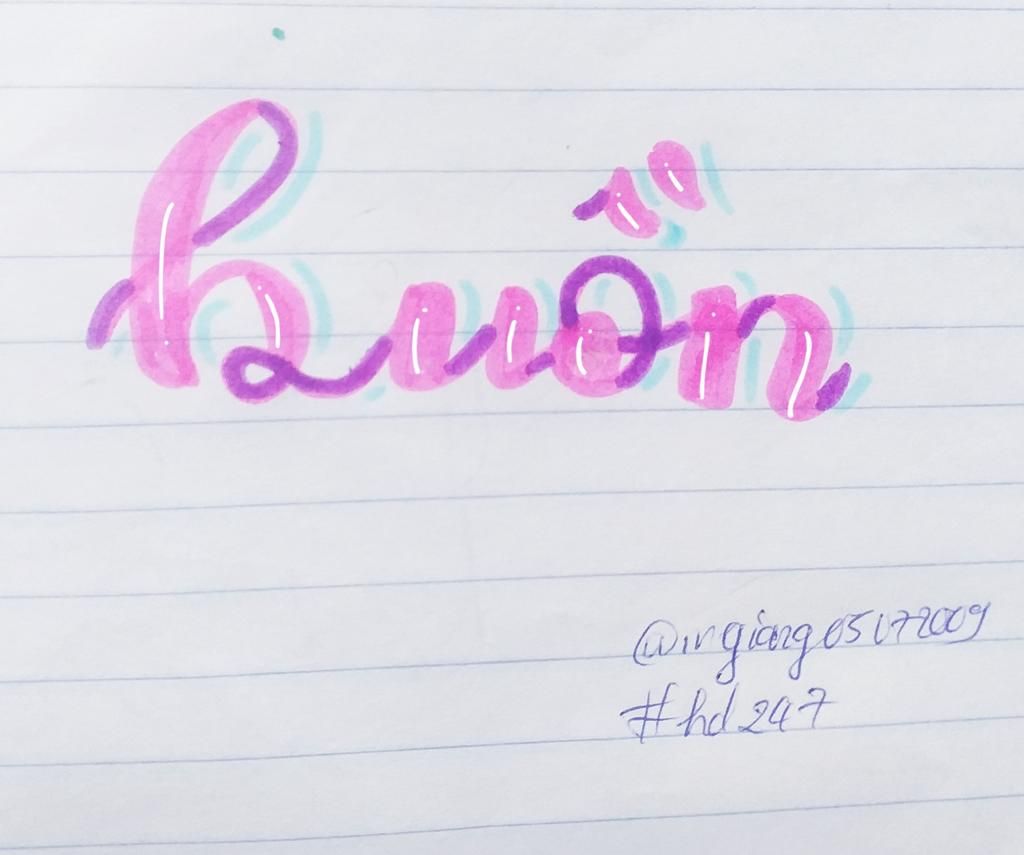 buồn
@ingiang05072009
#hd247